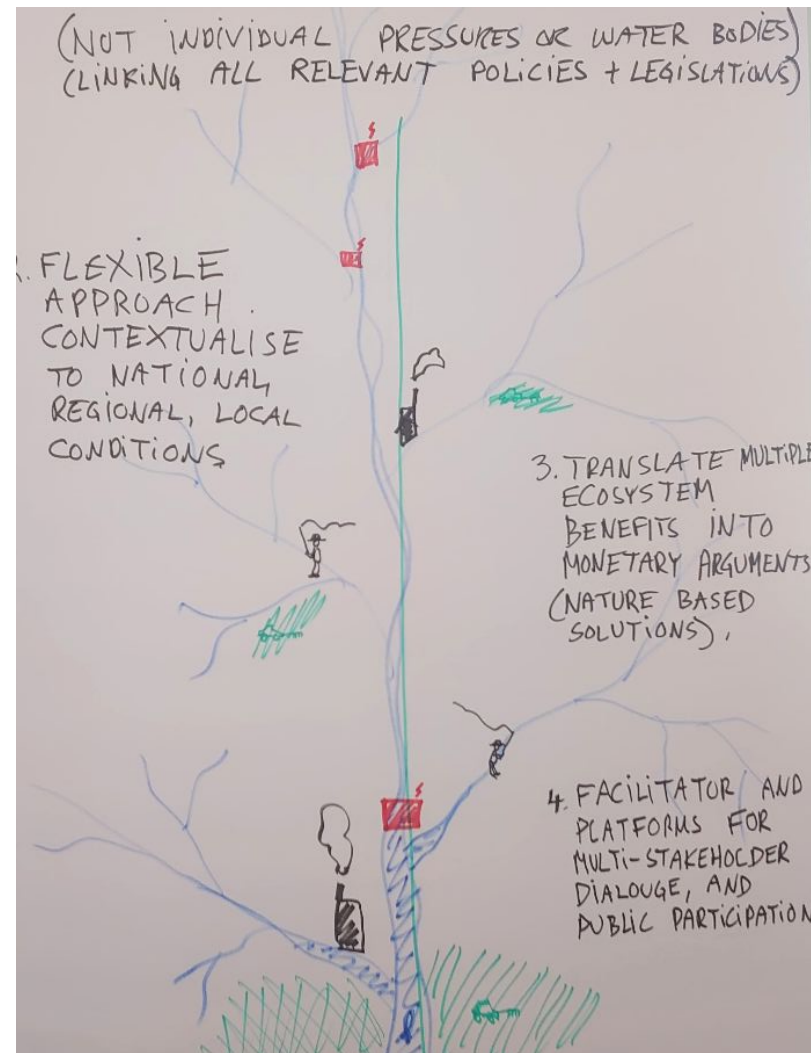 (NOT INDIVIDUAL PRESSURES OR WATER BODIES)
(LINKING ALL RELEVANT POLICIES + LEGISLATIONS)
. FLEXIBLE
APPROACH.
CONTEXTUALISE
TO NATIONAL,
REGIONAL, LOCAL
CONDITIONS
3. TRANSLATE MULTIPLE
ECOSYSTEM
BENEFITS INTO
MONETARY ARGUMENTS
(NATURE BASED
SOLUTIONS),
4. FACILITATOR AND
PLATFORMS FOR
MULTI-STAKEHOLDER
DIALOUGE, AND
PUBLIC PARTICIPATION